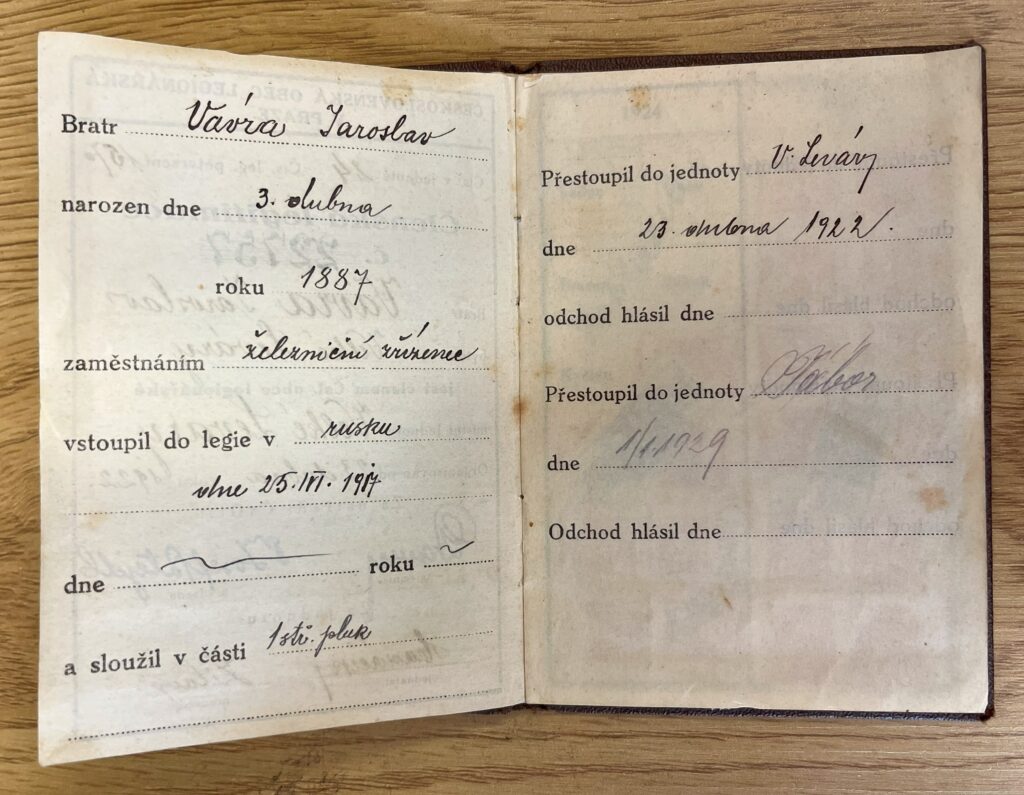 Bratr Vávra Jaroslav
narozen dne 3. dubna
roku 1887
zaměstnáním železniční zřízenec
vstoupil do legie v rusku
dne 25. VII. 1917
dne roku
a sloužil v části 1 stř. pluk
Přestoupil do jednoty V. Leváry
dne 23. dubna 1922.
odchod hlásil dne
Přestoupil do jednoty Tábor
dne 1/1.1929
Odchod hlásil dne